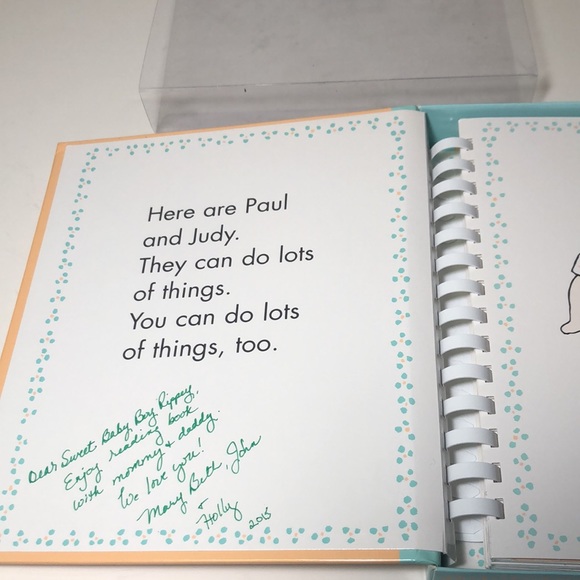 Here are Paul
and Judy.
They can do lots
of things.
You can do lots
of things, too.
Dear Sweet Baby Boy Rippey,
Enjoy reading book
with mommy & daddy.
We love you!
Mary Beth, John
+ Holly 2015